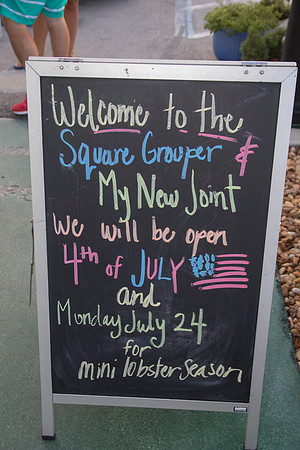 Welcome to the
Square Grouper &
My New Joint
We will be open
4th of JULY
and
Monday July 24
for
mini lobster season